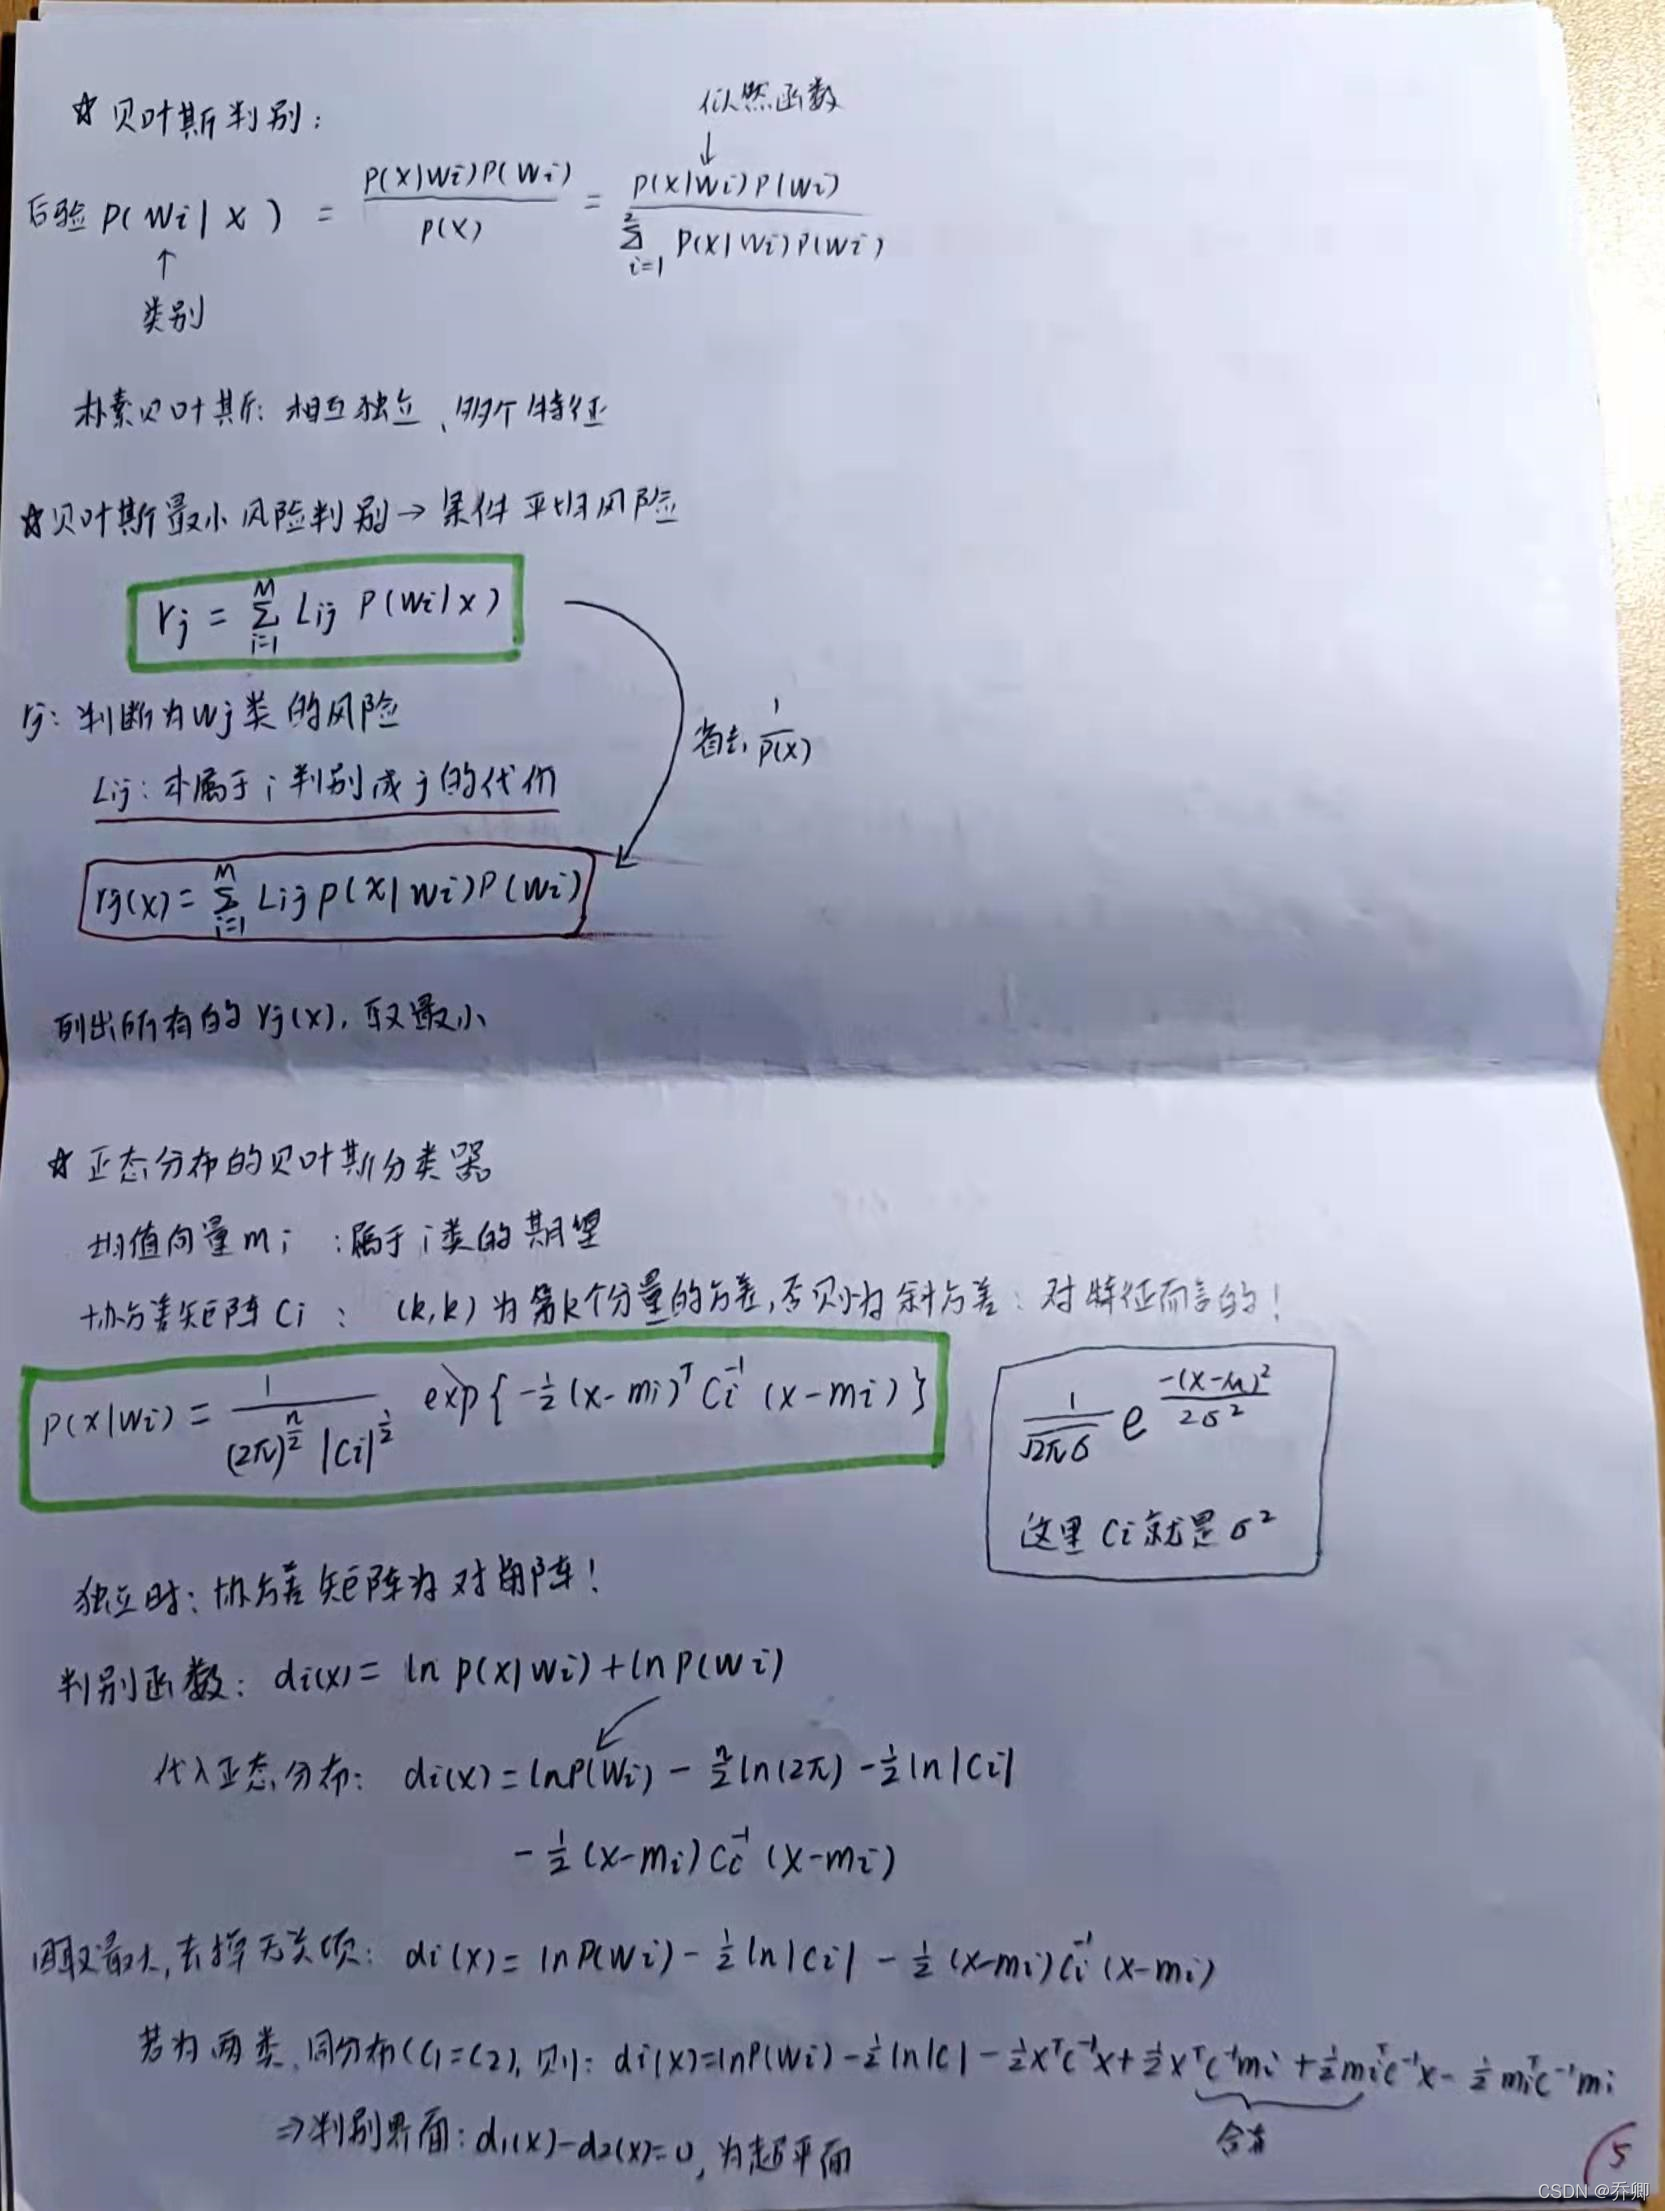 ☆ 贝叶斯判别:
似然函数
↓
后验 P(Wi|X) = P(X|Wi)P(Wi) / P(X) = P(X|Wi)P(Wi) / Σ_{i=1}^{2} P(X|Wi)P(Wi)
↑
类别
朴素贝叶斯: 相互独立、的个特征
☆贝叶斯最小风险判别→条件平均风险
rj = Σ_{i=1}^{M} Lij P(Wi|x)
rj: 判断为Wj类的风险
省去 1/P(X)
Lij: 本属于i判别成j的代价
rj(x) = Σ_{i=1}^{M} Lij P(X|Wi)P(Wi)
列出所有的 rj(x), 取最小
☆ 正态分布的贝叶斯分类器
均值向量mi :属于i类的期望
协方差矩阵Ci : (k,k)为第k个分量的方差,否则为斜方差: 对特征而言的!
P(X|Wi) = 1 / ((2π)^{n/2} |Ci|^{1/2}) exp{-½(x-mi)^T Ci^{-1} (x-mi)}
1/(√2πσ) e^{-(x-μ)²/2σ²}
这里 Ci 就是 σ²
独立时: 协方差矩阵为对角阵!
判别函数: di(x) = ln P(X|Wi) + ln P(Wi)
代入正态分布: di(x) = lnP(Wi) - n/2 ln(2π) - ½ ln|Ci|
- ½ (x-mi) Ci^{-1} (x-mi)
因取最大,去掉无关项: di(x) = lnP(Wi) - ½ ln|Ci| - ½ (x-mi) Ci^{-1} (x-mi)
若为两类、同分布(C1=C2), 则: di(x)=lnP(Wi) - ½ ln|C| - ½x^T C^{-1}x + ½x^T C^{-1}mi + ½mi^T C^{-1}x - ½ mi^T C^{-1} mi
合并
⇒判别界面: d1(x)-d2(x)=0, 为超平面
5
CSDN @乔卿